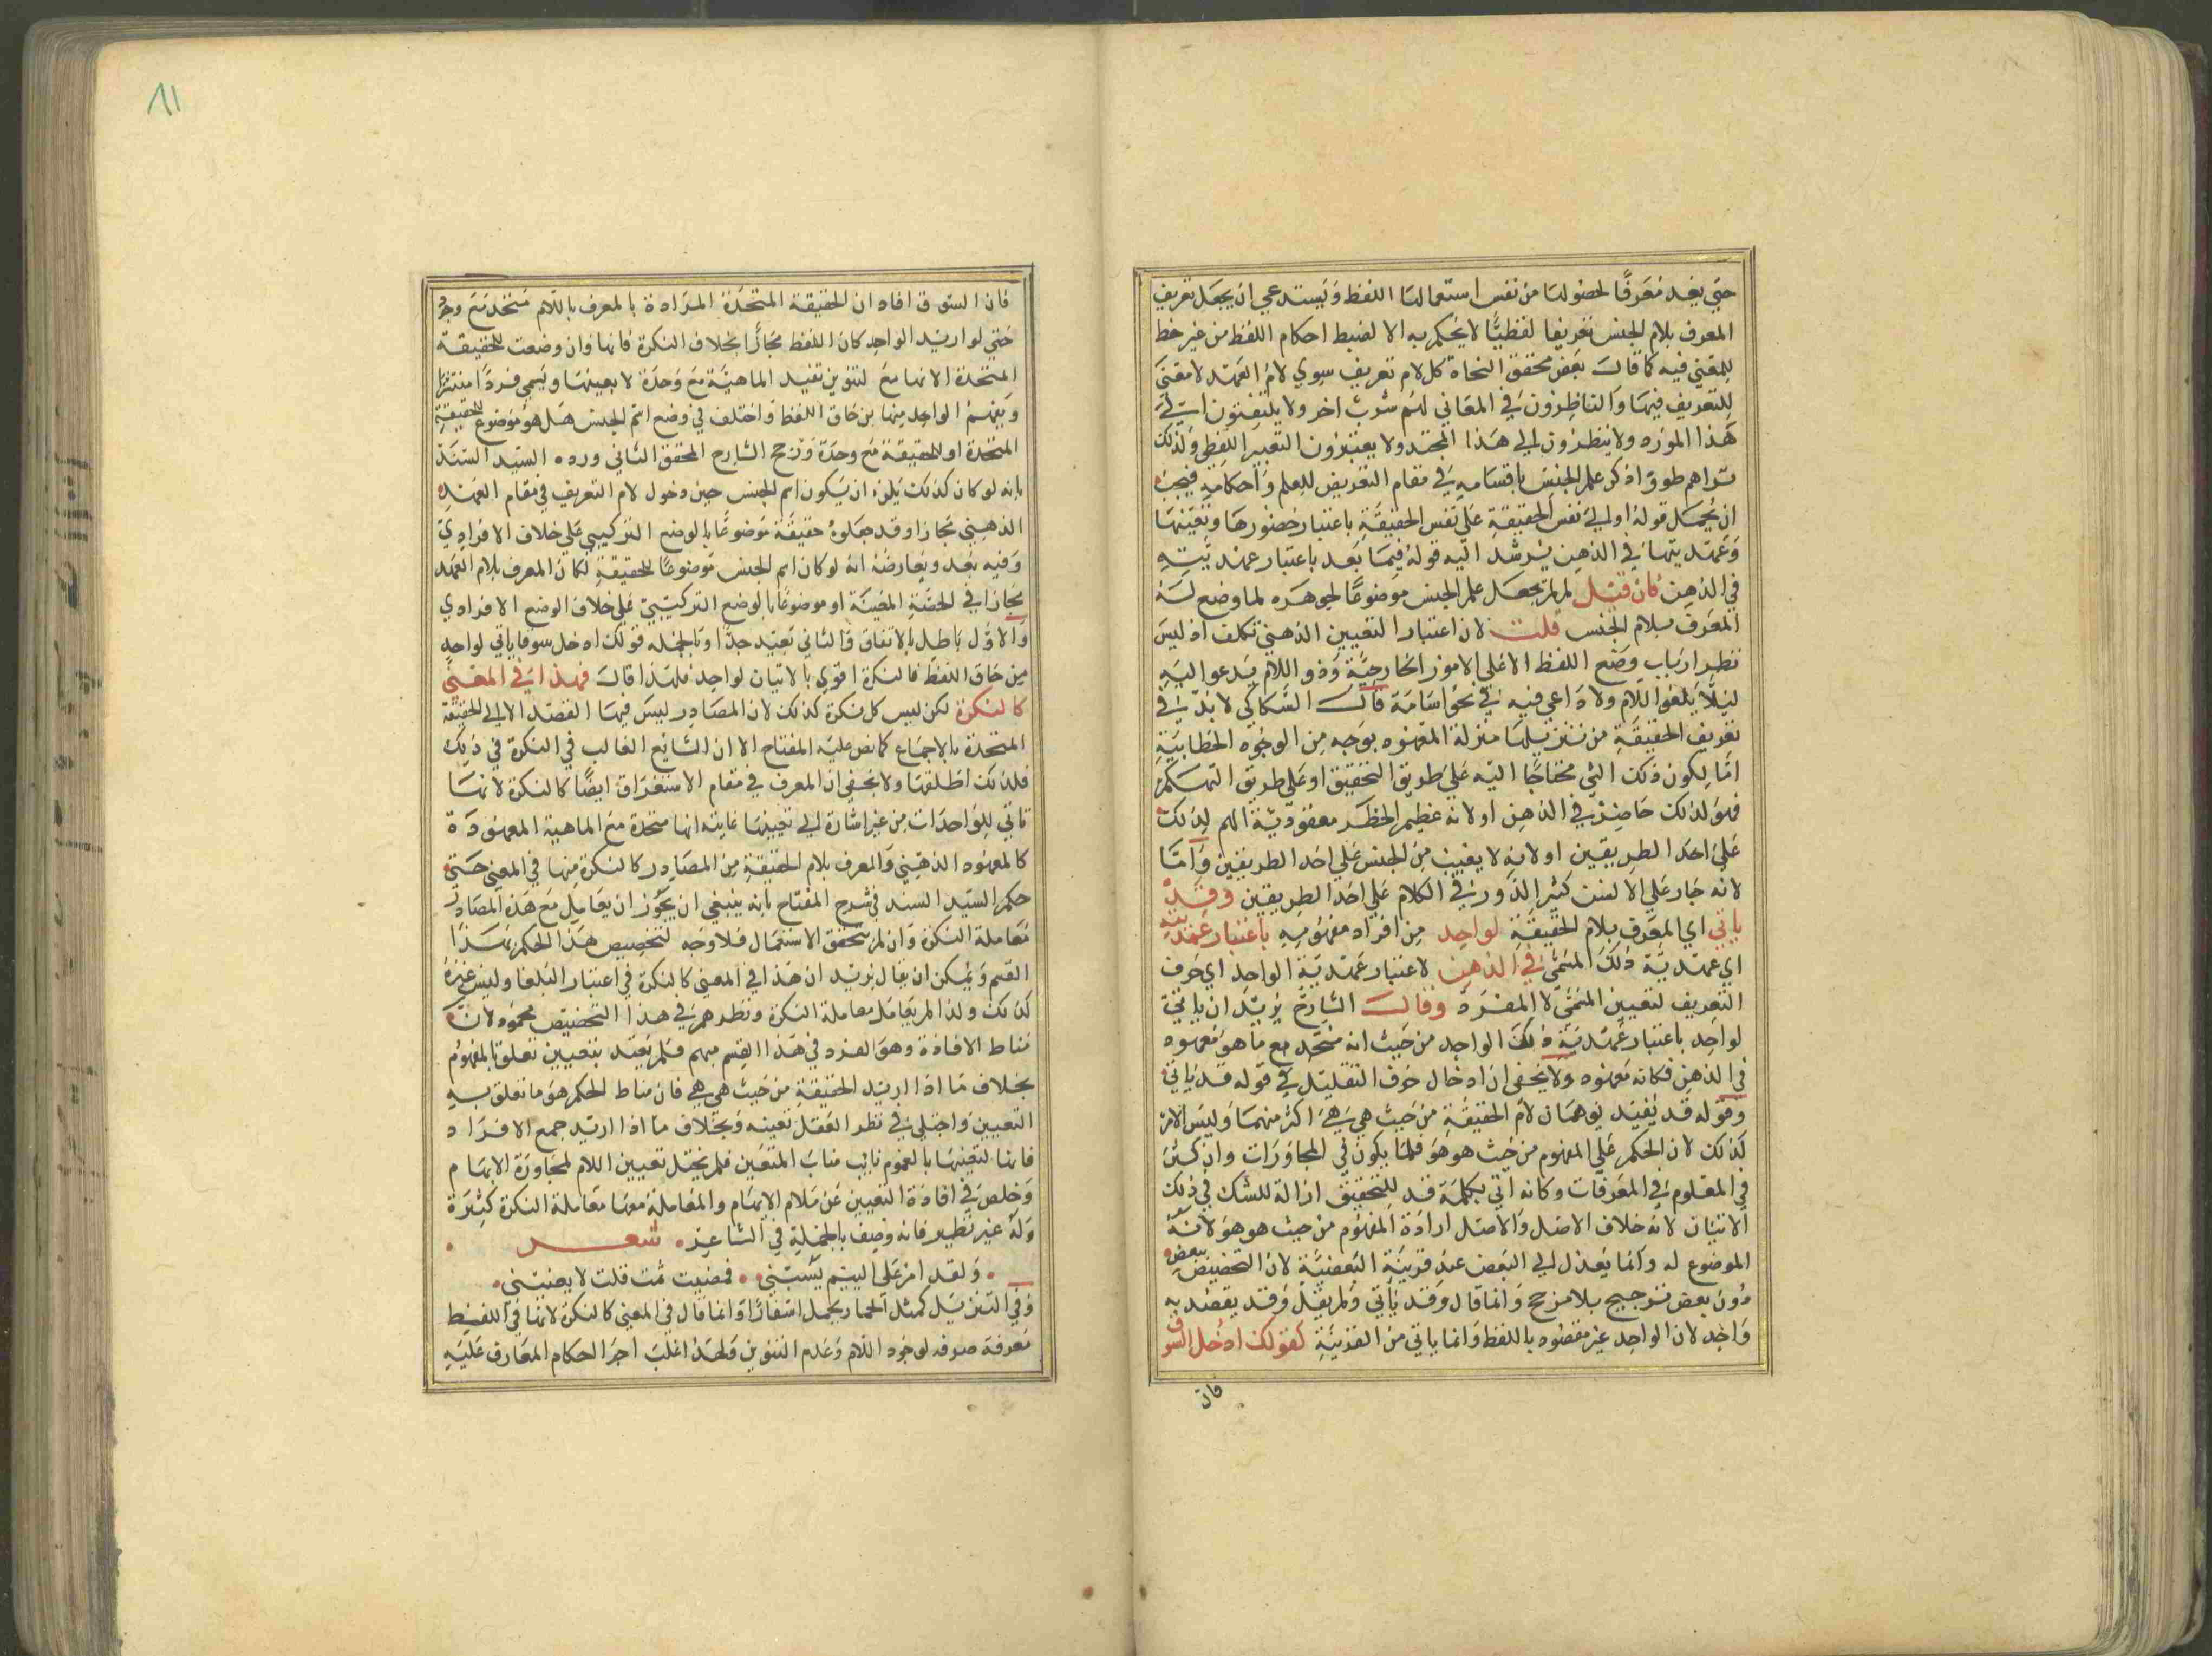 حتى يفيد معرفا لحضولها من نفس استعمالها اللفظ ويستدعي ان يجعل تعريف
المعرف بلام الجنس تعريفا لفظيا لا يحكم به الا لضبط احكام اللفظ من غير حظ
للمعنى فيه كما قال بعض محقق النحاة كل لام تعريف سوي لام العهد لا معنى
للتعريف فيها والناظرون في المعاني لهم شرب اخر ولا يلتفتون الى
هذا المورد ولا ينظرون الى هذا المجتد ولا يعتبرون التعبير اللفظي ولذلك
تراهم طووا ذكر علم الجنس باقسامه في مقام التعريض للعلم واحكامه فيجب
ان يحمل قوله اولا الى نفس الحقيقة على نفس الحقيقة باعتبار حضورها وتعينها
وعهديتها في الذهن يرشد اليه قوله فيما بعد باعتبار عهديته
في الذهن فان قيل لم لم يجعل علم الجنس موضوعا لجوهره لما وضع له
المعرف بلام الجنس قلت لان اعتبار التعيين الذهني تكلف اذ ليس
نظر ارباب وضع اللفظ الا على الامور الخارجية وذو اللام يدعو اليه
ليلا يلغو اللام ولا داعي فيه في نحو اسامة قال السكاكي لا بد في
تعريف الحقيقة من تنزيلها منزلة المعهود بوجه من الوجوه الخطابية
اما لكون ذلك الشي محتاجا اليه على طريق التحقيق او على طريق التهكم
فهو لذلك حاضر في الذهن او لانه عظيم الخطر معقود به الهم لذلك
على احد الطريقين او لانه لا يغيب من الجنس على احد الطريقين واما
لانه جار على الالسن كثير الدور في الكلام على احد الطريقين وقد
ياتي اي المعرف بلام الحقيقة لواحد من افراد مفهومه باعتبار عهديته
اي عهدية ذلك المسمى في الذهن لا عتبار عهدية الواحد اي حرف
التعريف لتعيين المسمى لا المفرد وقال الشارح يريد ان ياتي
لواحد باعتبار عهدية ذلك الواحد من حيث انه متحد مع ما هو معهود
في الذهن فكانه معهود ولا يخفى ان ادخال حرف التقليل في قوله قد ياتي
وقوله قد يفيد يوهمان لام الحقيقة من حيث هي هي اكثر منهما وليس الامر
كذلك لان الحكم على المفهوم من حيث هو هو فلما يكون في المحاورات وان كثر
في العلوم في المعرفات وكانه اتي بكلمة قد للتحقيق ازالة للشك في ذلك
الاتيان لانه خلاف الاصل والاصل ارادة المفهوم من حيث هو هو لانه
الموضوع له وانما يعدل الى البعض عند قرينة البعضية لان التخصيص ببعض
دون بعض ترجيح بلا مرجح وانما قال وقد ياتي ولم يقل وقد يقصد به
واحد لان الواحد غير مقصود باللفظ وانما ياتي من القرينة كقولك ادخل السوق
فان
فان السوق افاد ان الحقيقة المتحدة المرادة بالمعرف باللام متحد مع وجود
حتى لو اريد الواحد كان اللفظ مجازا بخلاف النكرة فانها وان وضعت للحقيقة
المتحدة الا انها مع التنوين تفيد الماهية مع وحدة لا بعينها ويسمى فردا منتشرا
ويفهم الواحد منها من حاق اللفظ واختلف في وضع اسم الجنس هل هو موضوع للحقيقة
المتحدة او للحقيقة مع وحدة ورجح الشارح المحقق الثاني ورده السيد السند
بانه لو كان كذلك يلزم ان يكون اسم الجنس حين دخول لام التعريف في مقام العهد
الذهني مجازا وقد جعلوه حقيقة موضوعا بالوضع التركيبي على خلاف الافرادي
وفيه بعد ويعارضه انه لو كان اسم الجنس موضوعا للحقيقة لكان المعرف بلام العهد
مجازا في الحصة المعينة او موضوعا بالوضع التركيبي على خلاف الوضع الافرادي
والاول باطل بالاتفاق والثاني بعيد جدا وبالجملة قولك ادخل سوقا ياتي لواحد
من حاق اللفظ فالنكرة اقوي بالاتيان لواحد فلهذا قال فهذا في المعنى
كالنكرة لكن ليس كل نكرة كذلك لان المصادر ليس فيها القصد الا الى الحقيقة
المتحدة بالاجماع كما نص عليه المفتاح الا ان الشايع الغالب في النكرة في ذلك
فلذلك اطلقها ولا يخفى ان المعرف في مقام الاستغراق ايضا كالنكرة لانها
تاتي للواحدات من غير اشارة الى تعيينها غايته انها متحدة مع الماهية المعهودة
كالمعهود الذهني والمعرف بلام الحقيقة من المصادر كالنكرة منها في المعنى حتى
حكم السيد السند في شرح المفتاح بانه ينبغي ان يجوز ان يعامل مع هذه المصادر
معاملة النكرة وان لم يتحقق الاستعمال فلا وجه لتخصيص هذا الحكم بهذا
القسم ويمكن ان يقال يريد ان هذا في المعنى كالنكرة في اعتبار البلغا وليس غيره
كذلك ولذا لم يعامل معاملة النكرة ونظرهم في هذا التخصيص محمود لان
مناط الافادة وهو الفرد في هذا القسم مبهم فلم يعتد بتعيين تعلق بالمفهوم
بخلاف ما اذا اريد الحقيقة من حيث هي هي فان مناط الحكم هو ما تعلق به
التعيين واجتلي في نظر العقل تعينه وبخلاف ما اذا اريد جمع الافراد
فانها لتعينها بالعموم نايب مناب المتعين فلم يختل تعيين اللام لمجاورة الابهام
وخلص في افادة التعيين عن ملام الابهام والمعاملة معها معاملة النكرة كثيرة
وله غير نظير فانه وصف بالجملة في الشاعر شعر
ولقد امر على اليتم يسبني فمضيت ثمت قلت لا يعنيني
وفي التنزيل كمثل الحمار يحمل اسفارا وانما قال في المعنى كالنكرة لانها في اللفظ
معرفة صرفه لوجود اللام وعدم التنوين ولهذا غلب اجرا احكام المعارف عليه